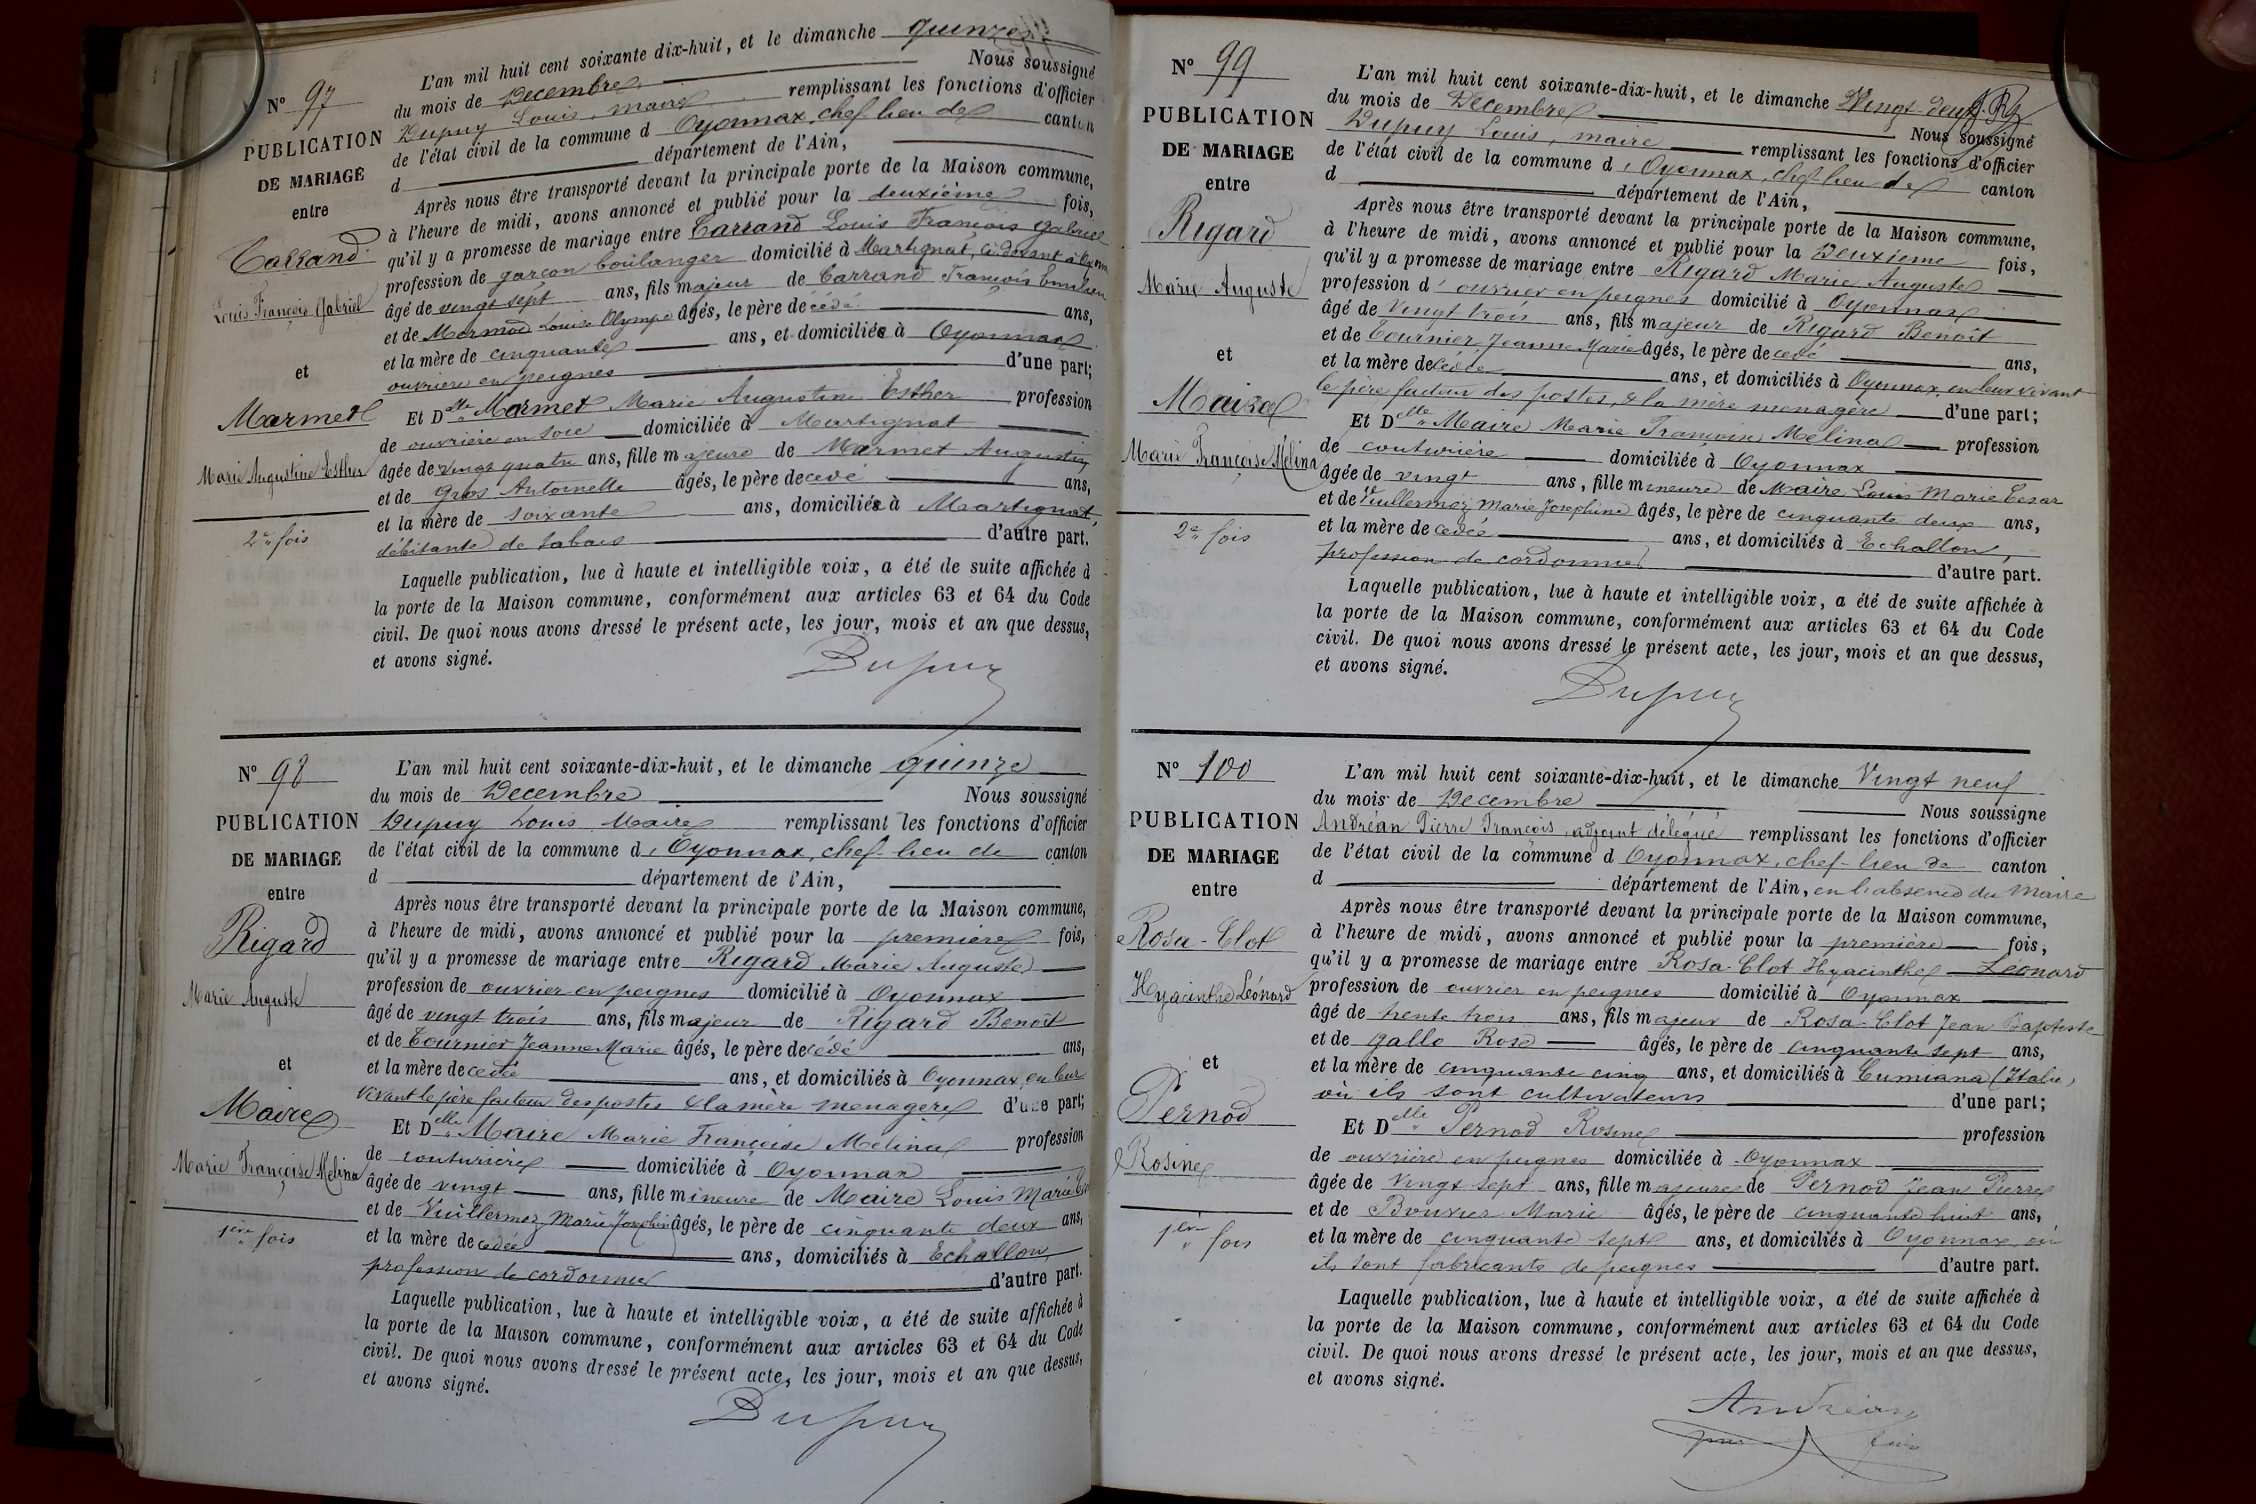 N° 97
PUBLICATION
DE MARIAGE
entre
Carrand
Louis François Gabriel
et
Marmet
Marie Augustine Esther
2e fois
L'an mil huit cent soixante dix-huit, et le dimanche quinze
du mois de Decembre Nous soussigné
Dupuy Louis, maire remplissant les fonctions d'officier
de l'état civil de la commune d Oyonnax, chef lieu de canton
d département de l'Ain,
Après nous être transporté devant la principale porte de la Maison commune,
à l'heure de midi, avons annoncé et publié pour la deuxième fois,
qu'il y a promesse de mariage entre Carrand Louis François Gabriel
profession de garçon boulanger domicilié à Martignat, ci-devant à
âgé de vingt sept ans, fils majeur de Carrand François
et de Mermod Louise Olympe âgés, le père decédé ans,
et la mère de cinquante ans, et domiciliée à Oyonnax
ouvrière en peignes d'une part;
Et Delle Marmet Marie Augustine Esther profession
de ouvrière en soie domiciliée à Martignat
âgée de vingt quatre ans, fille majeure de Marmet Augustin
et de Gros Antoinette âgés, le père decedé ans,
et la mère de soixante ans, domiciliée à Martignat,
débitante de tabacs d'autre part.
Laquelle publication, lue à haute et intelligible voix, a été de suite affichée à
la porte de la Maison commune, conformément aux articles 63 et 64 du Code
civil. De quoi nous avons dressé le présent acte, les jour, mois et an que dessus,
et avons signé.
Dupuy
N° 98
PUBLICATION
DE MARIAGE
entre
Rigard
Marie Auguste
et
Maire
Marie Françoise Mélina
1ère fois
L'an mil huit cent soixante-dix-huit, et le dimanche quinze
du mois de Decembre Nous soussigné
Dupuy Louis Maire remplissant les fonctions d'officier
de l'état civil de la commune d'Oyonnax, chef-lieu de canton
d département de l'Ain,
Après nous être transporté devant la principale porte de la Maison commune,
à l'heure de midi, avons annoncé et publié pour la première fois,
qu'il y a promesse de mariage entre Rigard Marie Auguste
profession de ouvrier en peignes domicilié à Oyonnax
âgé de vingt trois ans, fils majeur de Rigard Benoît
et de Tournier Jeanne Marie âgés, le père decédé ans,
et la mère decedée ans, et domiciliés à Oyonnax, en leur
vivant le père facteur des postes & la mère menagère d'une part;
Et Delle Maire Marie Françoise Mélina profession
de couturière domiciliée à Oyonnax
âgée de vingt ans, fille mineure de Maire Louis Marie
et de Vuillermoz Marie Josephine âgés, le père de cinquante deux ans,
et la mère decedée ans, domiciliés à Echallon,
profession de cordonnier d'autre part.
Laquelle publication, lue à haute et intelligible voix, a été de suite affichée à
la porte de la Maison commune, conformément aux articles 63 et 64 du Code
civil. De quoi nous avons dressé le présent acte, les jour, mois et an que dessus,
et avons signé.
Dupuy
N° 99
PUBLICATION
DE MARIAGE
entre
Rigard
Marie Auguste
et
Maire
Marie Françoise Mélina
2e fois
L'an mil huit cent soixante-dix-huit, et le dimanche Vingt-deux
du mois de Decembre Nous soussigné
Dupuy Louis, maire remplissant les fonctions d'officier
de l'état civil de la commune d'Oyonnax, chef-lieu de canton
d département de l'Ain,
Après nous être transporté devant la principale porte de la Maison commune,
à l'heure de midi, avons annoncé et publié pour la Deuxieme fois,
qu'il y a promesse de mariage entre Rigard Marie Auguste
profession d'ouvrier en peignes domicilié à Oyonnax
âgé de Vingt trois ans, fils majeur de Rigard Benoît
et de Tournier Jeanne Marie âgés, le père decedé ans,
et la mère decédée ans, et domiciliés à Oyonnax, en leur vivant
le père facteur des postes, & la mère menagère d'une part;
Et Delle Maire Marie Françoise Mélina profession
de couturière domiciliée à Oyonnax
âgée de vingt ans, fille mineure de Maire Louis Marie Cesar
et de Vuillermoz Marie Josephine âgés, le père de cinquante deux ans,
et la mère decedée ans, et domiciliés à Echallon,
profession de cordonnier d'autre part.
Laquelle publication, lue à haute et intelligible voix, a été de suite affichée à
la porte de la Maison commune, conformément aux articles 63 et 64 du Code
civil. De quoi nous avons dressé le présent acte, les jour, mois et an que dessus,
et avons signé.
Dupuy
N° 100
PUBLICATION
DE MARIAGE
entre
Rosa-Clot
Hyacinthe Léonard
et
Pernod
Rosine
1ère fois
L'an mil huit cent soixante-dix-huit, et le dimanche Vingt neuf
du mois de Decembre Nous soussigne
Andréan Pierre François, adjoint délégué remplissant les fonctions d'officier
de l'état civil de la commune d Oyonnax, chef-lieu de canton
d département de l'Ain, en l'absence du Maire
Après nous être transporté devant la principale porte de la Maison commune,
à l'heure de midi, avons annoncé et publié pour la première fois,
qu'il y a promesse de mariage entre Rosa-Clot Hyacinthe Léonard
profession de ouvrier en peignes domicilié à Oyonnax
âgé de trente trois ans, fils majeur de Rosa-Clot Jean Baptiste
et de Gallo Rose âgés, le père de cinquante sept ans,
et la mère de cinquante cinq ans, et domiciliés à Cumiana (Italie)
où ils sont cultivateurs d'une part;
Et Delle Pernod Rosine profession
de ouvrière en peignes domiciliée à Oyonnax
âgée de Vingt sept ans, fille majeure de Pernod Jean Pierre
et de Bouvier Marie âgés, le père de cinquante huit ans,
et la mère de cinquante sept ans, et domiciliés à Oyonnax où
ils sont fabricants de peignes d'autre part.
Laquelle publication, lue à haute et intelligible voix, a été de suite affichée à
la porte de la Maison commune, conformément aux articles 63 et 64 du Code
civil. De quoi nous avons dressé le présent acte, les jour, mois et an que dessus,
et avons signé.
Andréan